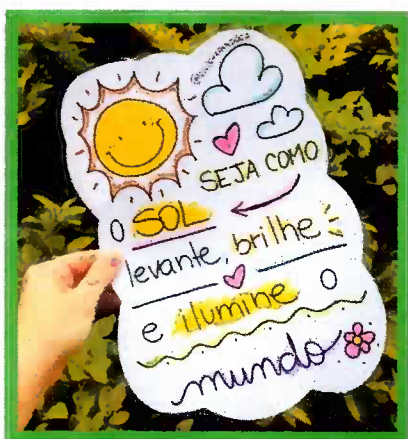 SEJA COMO
O SOL
levante, brilhe
e ilumine o
mundo